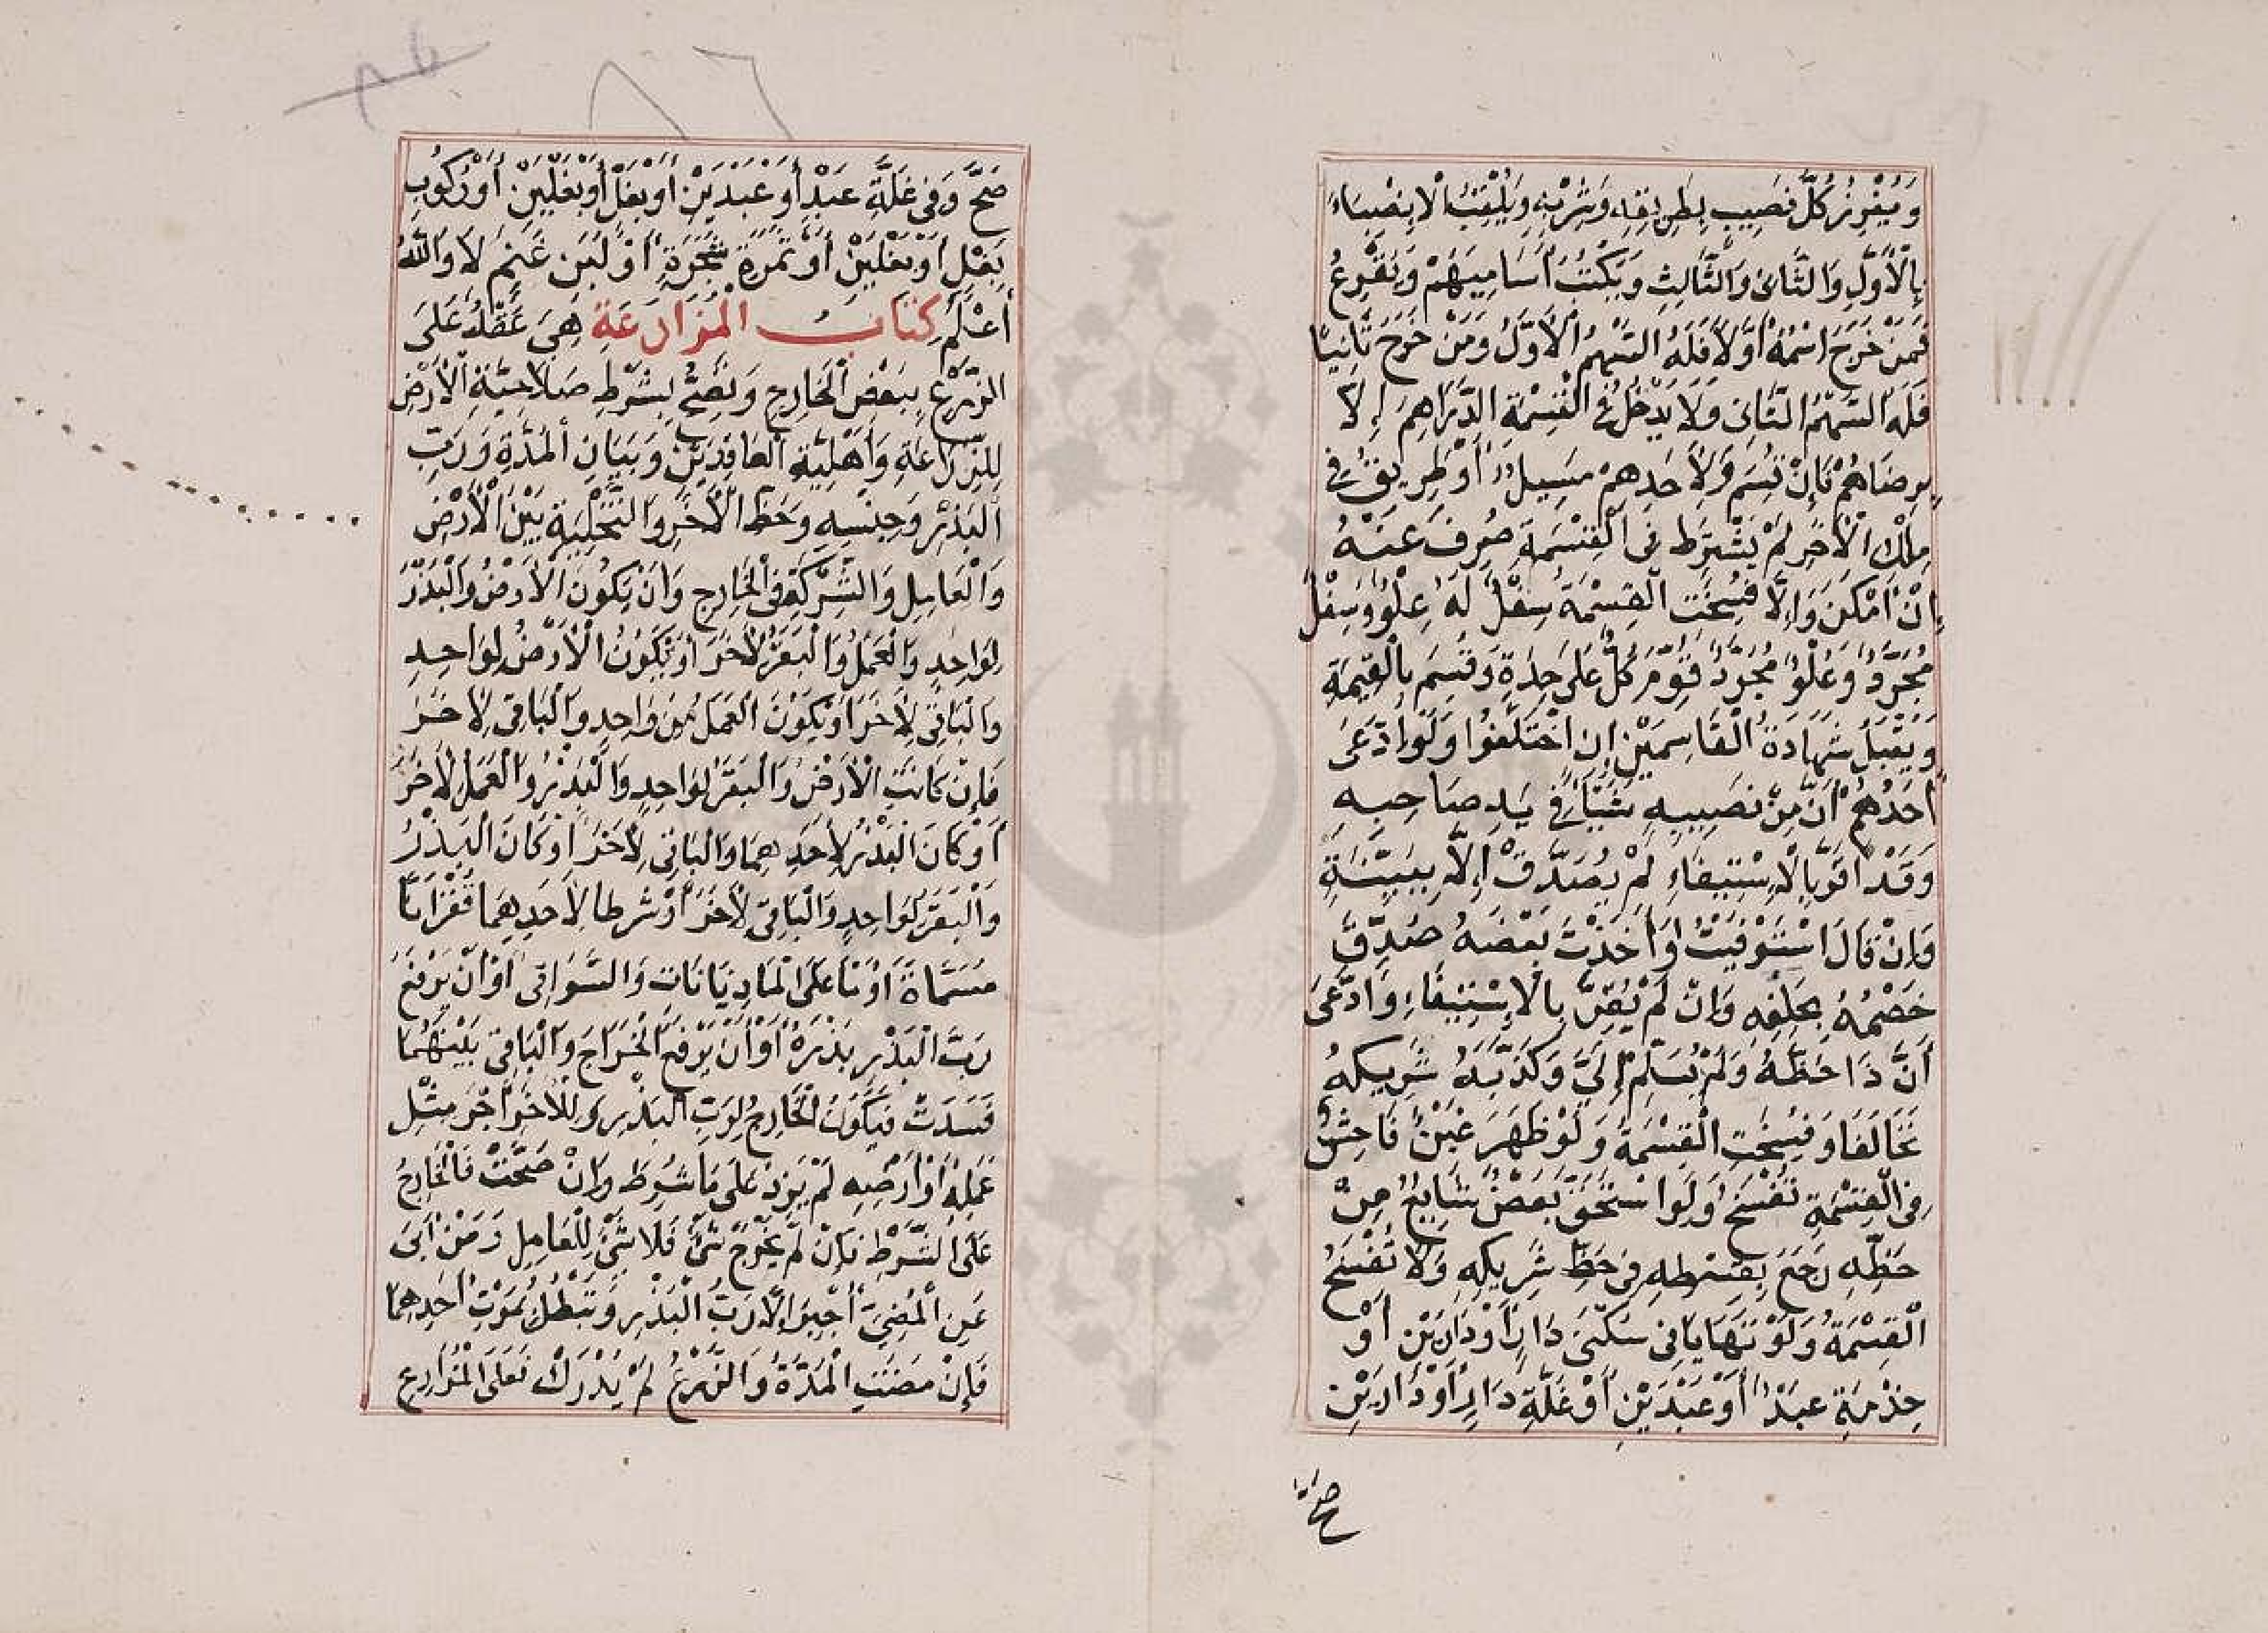 وَيُفْرِزُ كُلَّ نَصِيبٍ بِطَرِيقِهِ وَشُرْبِهِ وَيُلَقِّبُ الْاَنْصِبَاءَ
بِالْأَوَّلِ وَالثَّانِى وَالثَّالِثِ وَيَكْتُبُ أَسَامِيَهُمْ وَيَقْرَعُ
فَمَنْ خَرَجَ اسْمُهُ أَوَّلًا فَلَهُ السَّهْمُ الْأَوَّلُ وَمَنْ خَرَجَ ثَانِيًا
فَلَهُ السَّهْمُ الثَّانِى وَلَا يَدْخُلُ فِى الْقِسْمَةِ الدَّرَاهِمَ إِلَّا
بِرِضَاهُمْ فَإِنْ قُسِمَ وَلِأَحَدِهِمْ مَسِيلٌ أَوْ طَرِيقٌ فِى
مِلْكِ الْآخَرِ لَمْ يُشْتَرَطْ فِى الْقِسْمَةِ صُرِفَ عَنْهُ
إِنْ أَمْكَنَ وَإِلَّا فُسِخَتِ الْقِسْمَةُ سِفْلٌ لَهُ عِلْوٌ وَسِفْلٌ
مُجَرَّدٌ وَعُلْوٌ مُجَرَّدٌ قُوِّمَ كُلٌّ عَلَى حِدَةٍ وَقُسِمَ بِالْقِيمَةِ
وَيُقْبَلُ شَهَادَةُ الْقَاسِمَيْنِ إِنِ اخْتَلَفُوا وَلَوِ ادَّعَى
أَحَدُهُمْ أَنَّ مِنْ نَصِيبِهِ شَيْئًا فِى يَدِ صَاحِبِهِ
وَقَدْ أَقَرَّ بِالْاِسْتِيفَاءِ لَمْ يُصَدَّقْ إِلَّا بِبَيِّنَةٍ
وَإِنْ قَالَ اسْتَوْفَيْتُ وَأَخَذْتُ بَعْضَهُ صُدِّقَ
خَصْمُهُ بِحَلِفِهِ وَإِنْ لَمْ يُقِرَّ بِالْاِسْتِيفَاءِ وَادَّعَى
أَنَّ ذَا حَظُّهُ وَلَمْ يُسَلِّمْ إِلَيَّ وَكَذَّبَهُ شَرِيكُهُ
تَحَالَفَا وَفُسِخَتِ الْقِسْمَةُ وَلَوْ ظَهَرَ غَبْنٌ فَاحِشٌ
فِى الْقِسْمَةِ تُفْسَخُ وَلَوِ اسْتُحِقَّ بَعْضٌ شَايِعٌ مِنْ
حَظِّهِ رَجَعَ بِقِسْطِهِ فِى حَظِّ شَرِيكِهِ وَلَا تُفْسَخُ
الْقِسْمَةُ وَلَوْ تَهَايَا فِى سُكْنَى دَارٍ أَوْ دَارَيْنِ أَوْ
خِدْمَةِ عَبْدٍ أَوْ عَبْدَيْنِ أَوْ غَلَّةِ دَارٍ أَوْ دَارَيْنِ
صَحَّ
صَحَّ وَفِى غَلَّةِ عَبْدٍ أَوْ عَبْدَيْنِ أَوْ بَغْلٍ أَوْ بَغْلَيْنِ أَوْ رُكُوبِ
بَغْلٍ أَوْ بَغْلَيْنِ أَوْ ثَمَرَةِ شَجَرَةٍ أَوْ لَبَنِ غَنَمٍ لَا وَاللّٰهُ
أَعْلَمُ كِتَابُ الْمُزَارَعَةِ هِيَ عَقْدٌ عَلَى
الزَّرْعِ بِبَعْضِ الْخَارِجِ وَتَصِحُّ بِشَرْطِ صَلَاحِيَّةِ الْأَرْضِ
لِلزِّرَاعَةِ وَأَهْلِيَّةِ الْعَاقِدَيْنِ وَبَيَانِ الْمُدَّةِ وَرَبِّ
الْبَذْرِ وَجِنْسِهِ وَحَظِّ الْآخَرِ وَالتَّخْلِيَةِ بَيْنَ الْأَرْضِ
وَالْعَامِلِ وَالشِّرْكَةِ فِى الْخَارِجِ وَأَنْ يَكُونَ الْأَرْضُ وَالْبَذْرُ
لِوَاحِدٍ وَالْعَمَلُ وَالْبَقَرُ لِآخَرَ أَوْ يَكُونَ الْأَرْضُ لِوَاحِدٍ
وَالْبَاقِى لِآخَرَ أَوْ يَكُونَ الْعَمَلُ مِنْ وَاحِدٍ وَالْبَاقِى لِآخَرَ
فَإِنْ كَانَتِ الْأَرْضُ وَالْبَقَرُ لِوَاحِدٍ وَالْبَذْرُ وَالْعَمَلُ لِآخَرَ
أَوْ كَانَ الْبَذْرُ لِأَحَدِهِمَا وَالْبَاقِى لِآخَرَ أَوْ كَانَ الْبَذْرُ
وَالْبَقَرُ لِوَاحِدٍ وَالْبَاقِى لِآخَرَ أَوْ شَرَطَا لِأَحَدِهِمَا قُفْزَانًا
مُسَمَّاةً أَوْ مَا عَلَى الْمَاذِيَانَاتِ وَالسَّوَاقِى أَوْ أَنْ يَرْفَعَ
رَبُّ الْبَذْرِ بَذْرَهُ أَوْ أَنْ يَرْفَعَ الْخَرَاجَ وَالْبَاقِى بَيْنَهُمَا
فَسَدَتْ فَيَكُونُ الْخَارِجُ لِرَبِّ الْبَذْرِ وَلِلْآخَرِ أَجْرُ مِثْلِ
عَمَلِهِ أَوْ أَرْضِهِ لَمْ يَزِدْ عَلَى مَا شُرِطَ وَإِنْ صَحَّتْ فَالْخَارِجُ
عَلَى الشَّرْطِ فَإِنْ لَمْ يَخْرُجْ شَىْءٌ فَلَا شَىْءَ لِلْعَامِلِ وَمَنْ أَبَى
عَنِ الْمُضِيِّ أُجْبِرَ إِلَّا رَبُّ الْبَذْرِ وَتَبْطُلُ بِمَوْتِ أَحَدِهِمَا
فَإِنْ مَضَتِ الْمُدَّةُ وَالزَّرْعُ لَمْ يُدْرَكْ فَعَلَى الْمُزَارِعِ